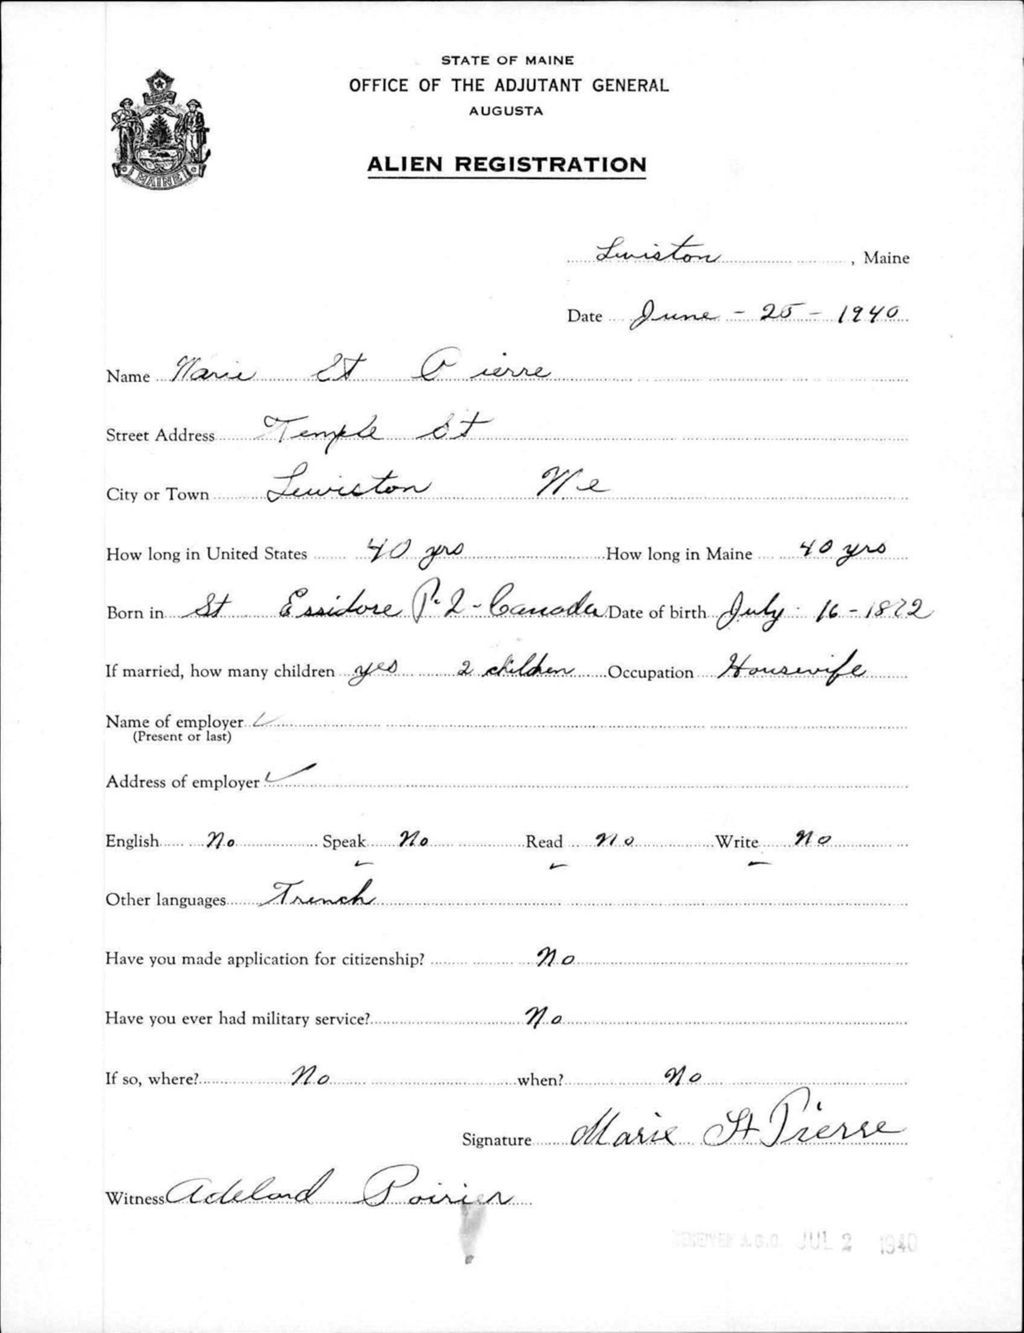 STATE OF MAINE
OFFICE OF THE ADJUTANT GENERAL
AUGUSTA
ALIEN REGISTRATION
MAINE
Lewiston, Maine
Date June - 25 - 1940
Name Marie St Pierre
Street Address Temple St
City or Town Lewiston Me
How long in United States 40 yrs How long in Maine 40 yrs
Born in St Essidore P.Q - Canada Date of birth July 16 - 1872
If married, how many children yes 2 children Occupation Housewife
Name of employer ✓
(Present or last)
Address of employer ✓
English No Speak No Read No Write No
Other languages French
Have you made application for citizenship? No
Have you ever had military service? No
If so, where? No when? No
Signature Marie St Pierre
Witness Adelard Poirier
RECEIVED A.G.O. JUL 2 1940